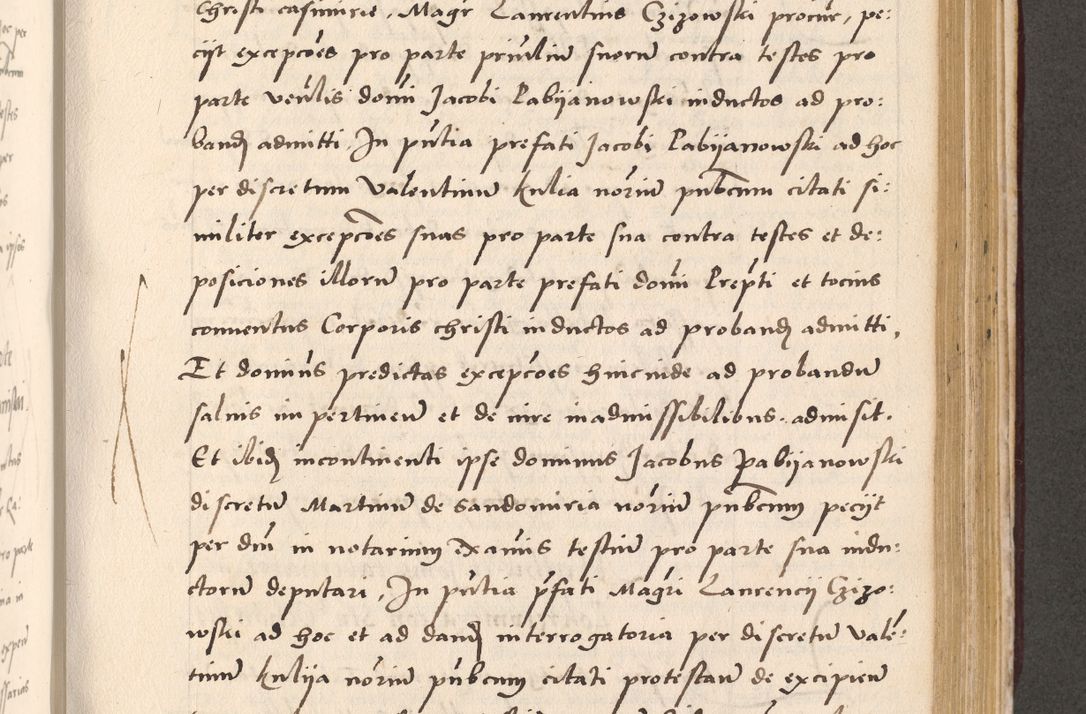 Christi casimirie, Magr Laurentius Czizowski procur, pe:
cijt excepcões pro parte prinlium suorum contra testes pro
parte venlis domi Jacobi Pabijanowski inductos ad pro:
band admitti, In pntia prefati Jacobi Pabijanowski ad hoc
per discretum Valentinum Kulia norium pnbcum citati si:
militer excepcões suas pro parte sua contra testes et de:
posiciones illorum pro parte prefati domi Prepti et tocius
conuentus Corporis christi inductos ad proband admitti,
Et dominus predictas excepcões hincinde ad probandum
saluis impertinen et de iure inadmissibilibus. admisit.
Et ibid incontinenti ipse dominus Jacobus Pabijanowski
discretum Martinum de Sandomiria norium pnbcum pecijt
per dm in notarium examis testium pro parte sua indu:
ctorum deputari, In pntia pfati Magri Laurencij Czizo:
wski ad hoc et ad dand interrogatoria per discretum Valen:
tinum Kulija norium pnbcum citati protestan de excipien